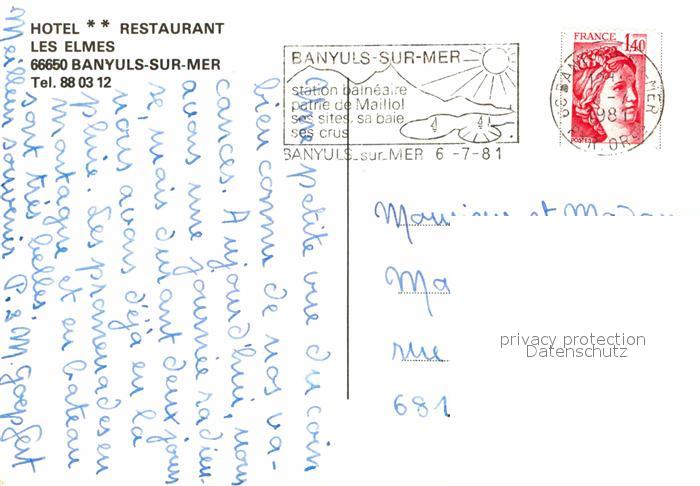 HOTEL ** RESTAURANT
LES ELMES
66650 BANYULS-SUR-MER
Tel. 88 03 12
BANYULS-SUR-MER
station balnéaire
patrie de Maillol
ses sites, sa baie
ses crus
BANYULS-sur-MER 6-7-81
FRANCE 1,40
POSTES
1981
Une petite vue du coin
bien connu de nos va-
cances. Aujourd'hui, nous
avons une journée radieu-
se, mais durant deux jours
nous avons déjà eu la
pluie. Les promenades en
montagne et en bateau
sont très belles.
Meilleurs souvenirs P. & M.
Monsieur et Madam
Ma
rue
681
privacy protection
Datenschutz